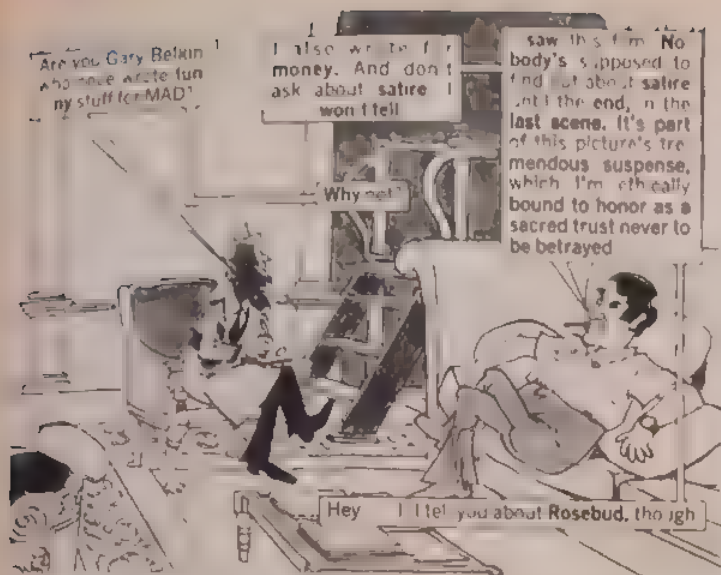 Are you Gary Belkin
who once wrote fun
ny stuff for MAD?
I also write for
money. And don't
ask about satire I
won't tell
Why not?
saw this film No
body's supposed to
find out about satire
until the end, in the
last scene. It's part
of this picture's tre
mendous suspense,
which I'm ethically
bound to honor as a
sacred trust never to
be betrayed
Hey I'll tell you about Rosebud, though